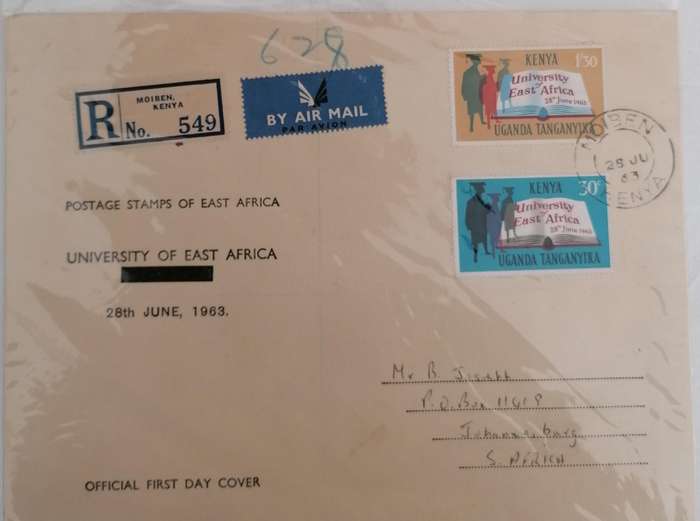 628
R
MOIREN,
KENYA
No. 549
BY AIR MAIL
PAR AVION
KENYA 1/30
University
of
East Africa
28th June 1963
UGANDA TANGANYIKA
MOIBEN
28 JU
63
KENYA
KENYA
30c
University
of
East Africa
28th June 1963
UGANDA TANGANYIKA
POSTAGE STAMPS OF EAST AFRICA
UNIVERSITY OF EAST AFRICA
28th JUNE, 1963.
Mr B.
P.O. Box 11419
Johannesburg
S. AFRICA
OFFICIAL FIRST DAY COVER